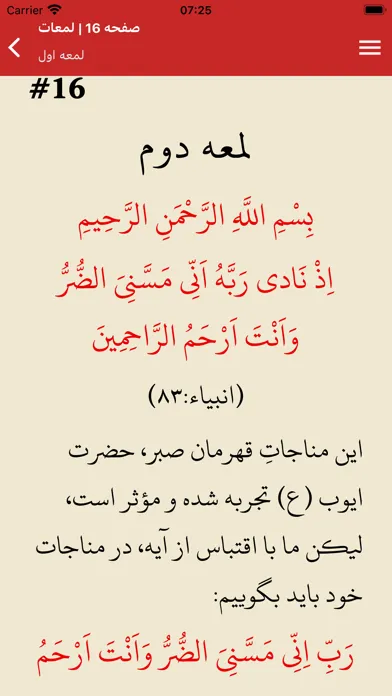 Carrier 07:25
صفحه 16 | لمعات
لمعه اول
#16
لمعه دوم
بِسْمِ اللَّهِ الرَّحْمَنِ الرَّحِيمِ
اِذْ نَادى رَبَّهُ اَنّى مَسَّنِىَ الضُّرُّ
وَاَنْتَ اَرْحَمُ الرَّاحِمِينَ
(انبیاء:۸۳)
این مناجاتِ قهرمان صبر، حضرت
ایوب (ع) تجربه شده و مؤثر است،
لیکن ما با اقتباس از آیه، در مناجات
خود باید بگوییم:
رَبِّ اِنّى مَسَّنِىَ الضُّرُّ وَاَنْتَ اَرْحَمُ